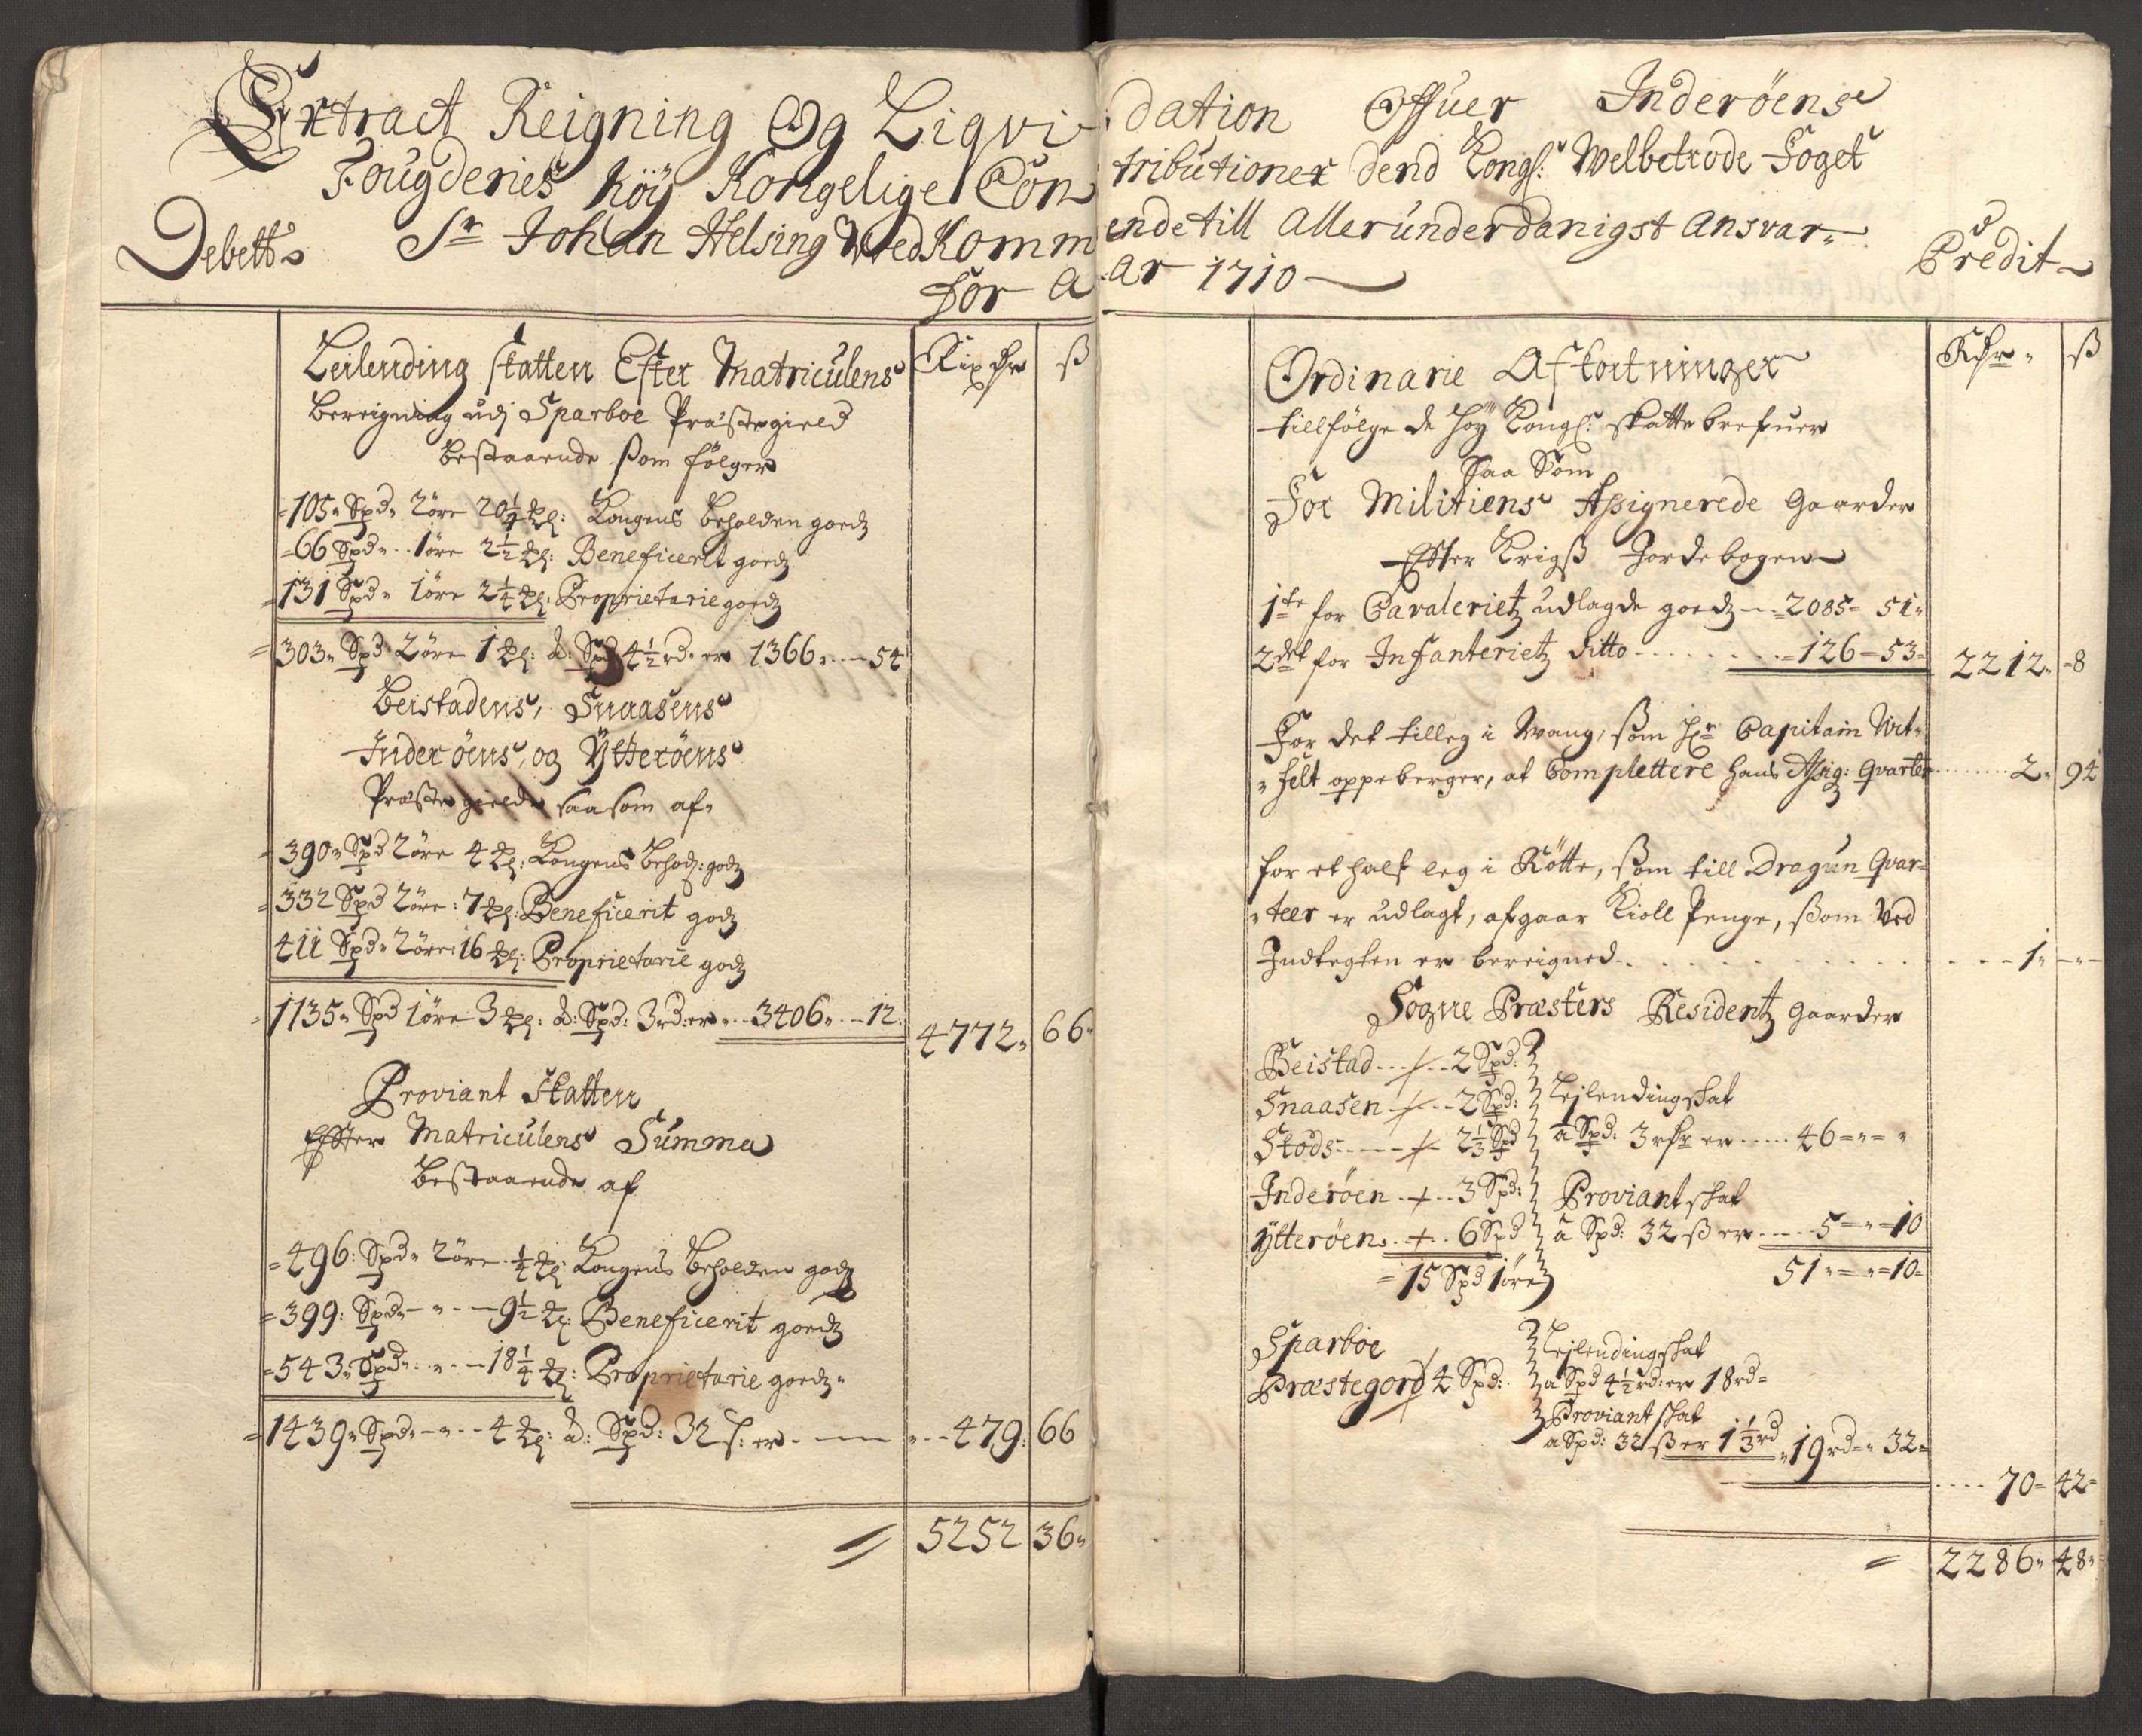 Extract Reigning Og Liqvi dation Offuer Inderöens
Fougderies höy Kongelige Con tributioner dend Kongl: Welbetrode Foget
Debett Sr Johan Helsing Ved Komm ende till alleründerdanigst ansvar
for A ar 1710
Credit
Leilending skatten Efter Matriculens
Rix dr ß
bereigning udj Sparboe Præstegield
bestaaende som følger
105 Spd 2 öre 20 1/4 Kongens beholden goedz
66 Spd 1 öre 2 1/2 Beneficerit goedz
131 Spd 1 öre 2 1/4 Proprietarie goedz
303 Spd 2 öre 1 a: Spd 4 1/2 rd er 1366 54
Beistadens, Snaasens
Inderöens, og Ytteröens
Præstegielde saa som af
390 Spd 2 öre 4 Kongens behod: godz
332 Spd 2 öre 7 Beneficerit godz
411 Spd 2 öre 16 Proprietarie godz
1135 Spd 1 öre 3 a: Spd: 3 rd: er 3406 12
4772 66
Proviant Skatten
Effter Matriculens Summa
bestaaende af
496: Spd 2 öre 1/4 Kongens beholden godz
399: Spd 9 1/2 Beneficerit goedz
543 Spd 18 1/4 Proprietarie goedz
1439 Spd 4 a: Spd: 32 s: er 479: 66
5252 36
Ordinarie Afkortninger
Rdr ß
tillfölge de höy Kongl: skatte brefuer
Saa Som
For Militiens Assignerede gaarder
Effter Krigß Jordebogen
1te for Cavalerietz udlagde goedz 2085 51
2det for Infanterietz ditto 126 53
2212 8
For det tilleg i Wang, som Hr Capitain Wit
felt oppeberger, at Complettere hans Assig: Qvarter 2 94
for et half leg i Rötte, som till Dragun Qvar
teer er udlagt, afgaar Kioll Penge, som ved
Indtegten er bereigned 1
Sogne Præsters Residentz gaarder
Beistad 2 Spd:
Snaasen 2 Spd: Lejlendingskat
Stods 2 1/3 Spd a Spd: 3 rdr er 46
Inderöen 3 Spd: Proviantskat
Ytteröen 6 Spd a Spd: 32 ß er 5 10
15 Spd 1 öre 51 10
Sparboe Lejlendingskat
Præstegord 4 Spd: a Spd 4 1/2 rd: er 18 rd
Proviant skat
a Spd: 32 ß er 1 1/3 rd 19 rd 32
70 42
2286 48